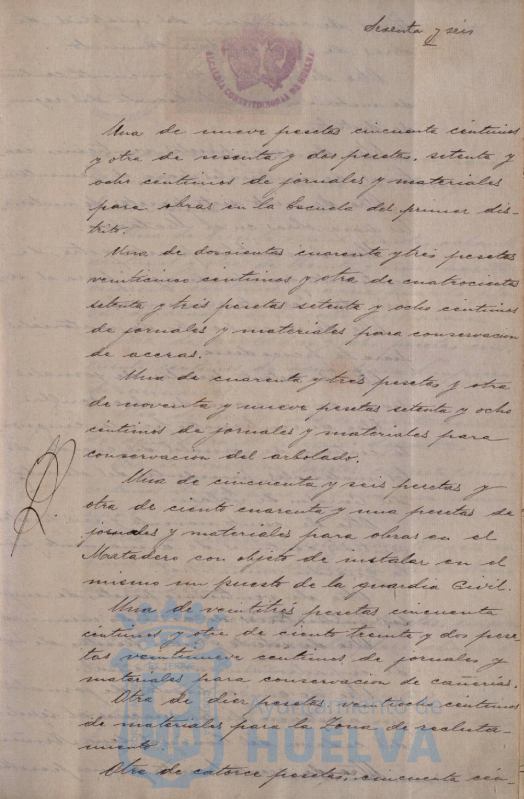 Sesenta y seis
ALCALDIA CONSTITUCIONAL DE HUELVA
Una de nueve pesetas cincuenta céntimos
y otra de sesenta y dos pesetas, setenta y
ocho céntimos de jornales y materiales
para obras en la Escuela del primer dis-
trito.
Una de doscientas cuarenta y tres pesetas
veinticinco céntimos y otra de cuatrocientas
setenta y tres pesetas setenta y ocho centimos
de jornales y materiales para conservacion
de aceras.
Una de cuarenta y tres pesetas y otra
de noventa y nueve pesetas setenta y ocho
céntimos de jornales y materiales para
conservación del arbolado.
Una de cincuenta y seis pesetas y
otra de ciento cuarenta y una pesetas de
jornales y materiales para obras en el
Matadero con objeto de instalar en el
mismo un puesto de la guardia Civil.
Una de veintitrés pesetas cincuenta
céntimos y otra de ciento treinta y dos pese-
tas veintinueve centimos de jornales y
materiales para conservacion de cañerías.
Otra de diez pesetas ventiocho centimos
de materiales para la Zona de recluta-
miento.
Otra de catorce pesetas, cincuenta cén-
Ayuntamiento de
HUELVA